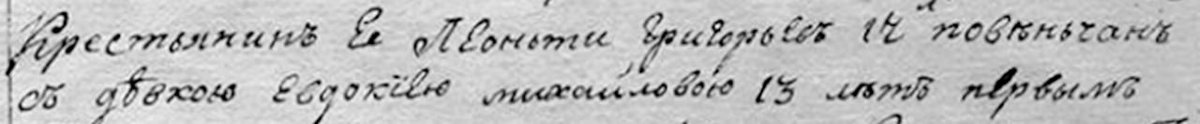 Крестьянинъ Ее Леонти Григорьевъ 17 л повѣньчанъ
съ дѣвкою Евдокіею михайловою 13 лѣтъ первымъ